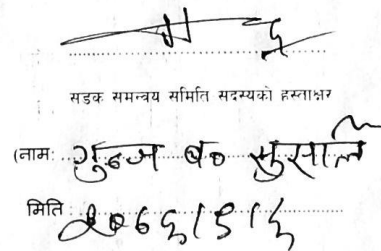 सडक समन्वय समिति सदस्यको हस्ताक्षर
(नाम: गुन्ज ब० सुसालि
मिति २०६६/९/६